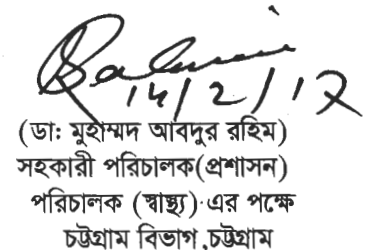 14/2/17
(ডা: মুহাম্মদ আবদুর রহিম)
সহকারী পরিচালক(প্রশাসন)
পরিচালক (স্বাস্থ্য) এর পক্ষে
চট্টগ্রাম বিভাগ,চট্টগ্রাম